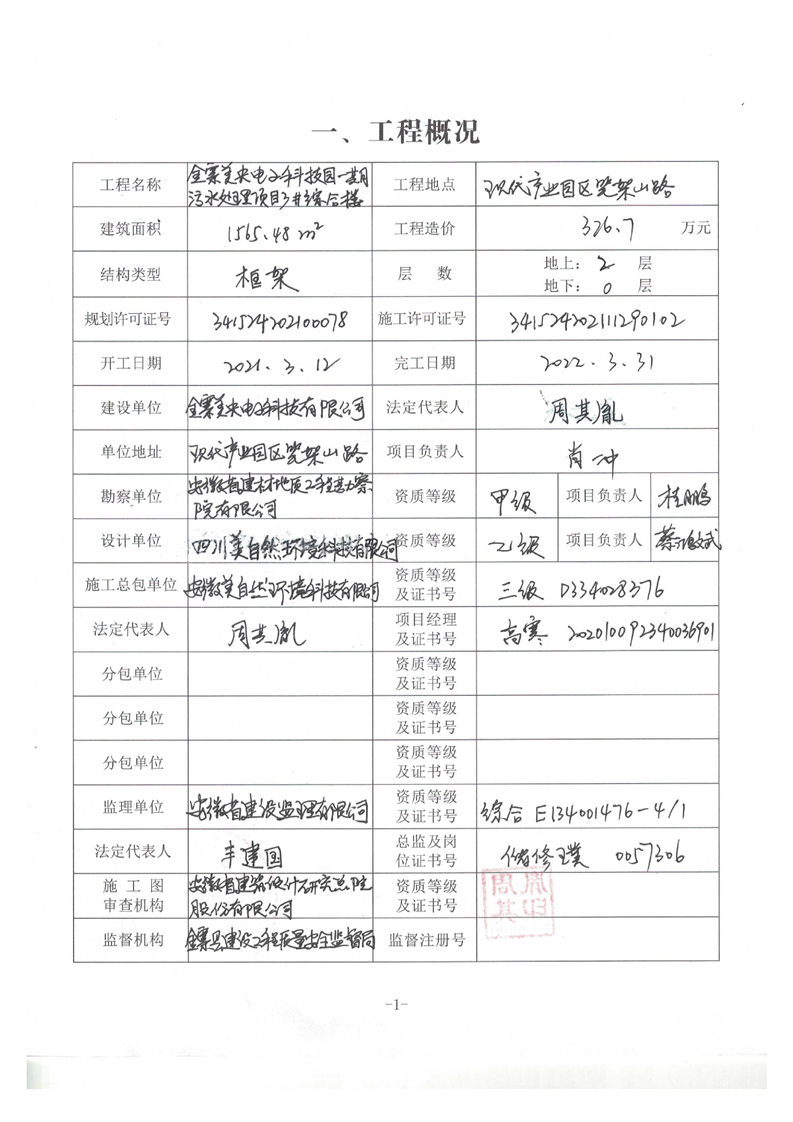 一、工程概况
工程名称 金寨美央电子科技园一期污水处理项目3#综合楼 工程地点 现代产业园区笔架山路
建筑面积 1565.48 m² 工程造价 326.7 万元
结构类型 框架 层 数 地上: 2 层
地下: 0 层
规划许可证号 341524202100078 施工许可证号 341524202111290102
开工日期 2021.3.12 完工日期 2022.3.31
建设单位 金寨美央电子科技有限公司 法定代表人 周其胤
单位地址 现代产业园区笔架山路 项目负责人 肖冲
勘察单位 安徽省建材地质工程勘察院有限公司 资质等级 甲级 项目负责人 桂鹏
设计单位 四川美自然环境科技有限公司 资质等级 乙级 项目负责人 蔡鸿斌
施工总包单位 安徽美自然环境科技有限公司 资质等级
及证书号 三级 D334028376
法定代表人 周其胤 项目经理
及证书号 高寒 202010092340036901
分包单位 资质等级
及证书号
分包单位 资质等级
及证书号
分包单位 资质等级
及证书号
监理单位 安徽省建设监理有限公司 资质等级
及证书号 综合 E134001476-4/1
法定代表人 丰建国 总监及岗
位证书号 储修璞 0057306
施 工 图
审查机构 安徽省建筑设计研究总院股份有限公司 资质等级
及证书号
周胤
其印
监督机构 金寨县建设工程质量安全监督局 监督注册号
-1-